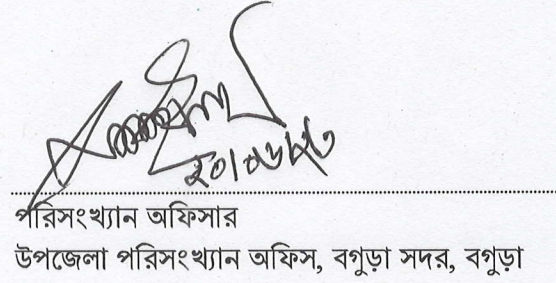 পরিসংখ্যান অফিসার
উপজেলা পরিসংখ্যান অফিস, বগুড়া সদর, বগুড়া